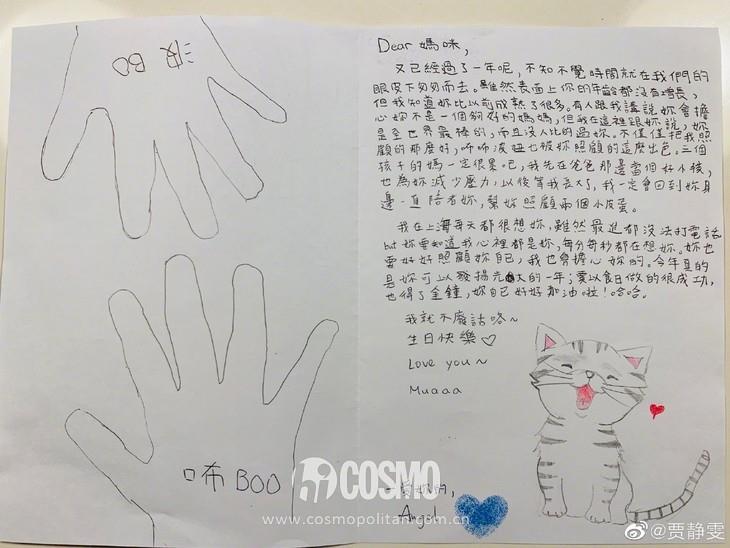 波 BO
咘 BOO
Dear 媽咪,
又已經過了一年呢, 不知不覺時間就在我們的
眼皮下匆匆而去。雖然表面上你的年齡都沒有增長,
但我知道妳比以前成熟了很多。有人跟我講說妳會擔
心妳不是一個夠好的媽媽, 但我在這裡跟妳說, 妳
是全世界最棒的, 而且沒人比的過妳。不僅僅把我照
顧的那麼好, 咘咘波妞也被妳照顧的這麼出色。三個
孩子的媽一定很累吧, 我先在爸爸那邊當個好小孩,
也為妳減少壓力, 以後等我長大了, 我一定會回到妳身
邊一直陪著妳, 幫妳照顧兩個小皮蛋。
我在上海每天都很想妳, 雖然最近都沒法打電話
but 妳要知道我心裡都是妳, 每分每秒都在想妳。妳也
要好好照顧妳自己, 我也會擔心妳的。今年真的
是妳可以發揚光大的一年; 愛以食日做的很成功,
也得了金鐘, 妳自己好好加油啦! 哈哈。
我就不廢話咯~
生日快樂♡
Love you~
Muaaa
Angel
COSMO
www.cosmopolitan.com.cn
@贾静雯